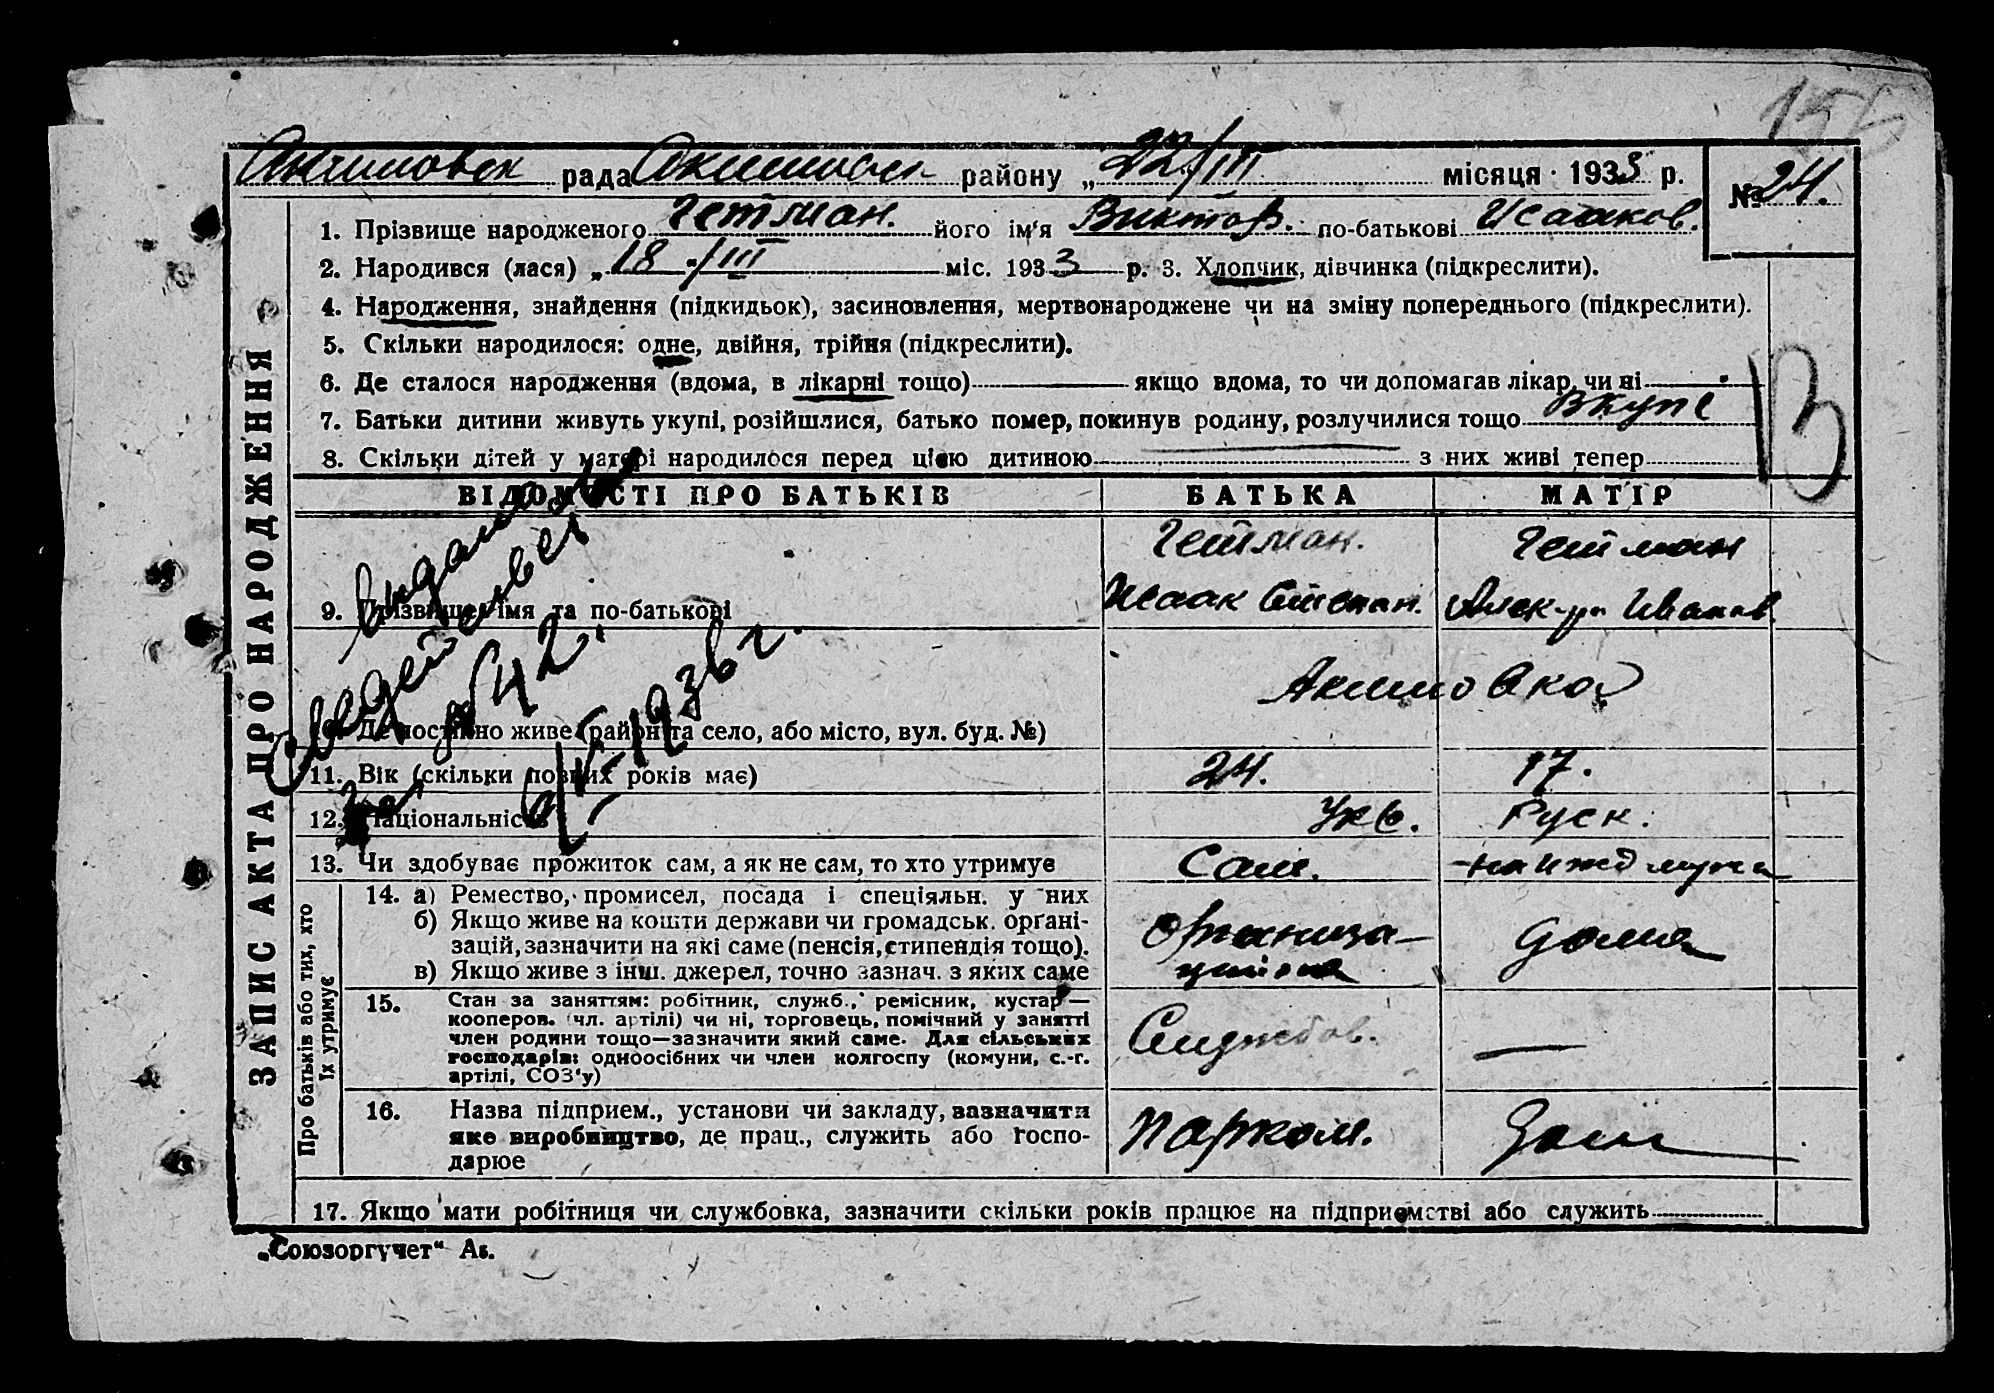 155
Акимовск рада Акимовск району „22/III місяця 1933 р. № 24.
ЗАПИС АКТА ПРО НАРОДЖЕННЯ
1. Прізвище народженого Гетман. його ім'я Виктор. по-батькові Исааков.
2. Народився (лася) „18/III міс. 1933 р. 3. Хлопчик, дівчинка (підкреслити).
4. Народження, знайдення (підкидьок), засиновлення, мертвонароджене чи на зміну попереднього (підкреслити).
5. Скільки народилося: одне, двійня, трійня (підкреслити).
6. Де сталося народження (вдома, в лікарні тощо) якщо вдома, то чи допомагав лікар, чи ні
7. Батьки дитини живуть укупі, розійшлися, батько помер, покинув родину, розлучилися тощо Вкупі
8. Скільки дітей у матері народилося перед цією дитиною з них живі тепер
В
ВІДОМОСТІ ПРО БАТЬКІВ БАТЬКА МАТІР
Гетман. Гетман
9. Прізвище, імя та по-батькові Исаак Степан. Алек-ра Иванов.
Акимовка
10. Де постійно живе (район та село, або місто, вул. буд. №)
11. Вік (скільки повних років має) 24. 17.
12. Національність Укр. Руск.
13. Чи здобуває прожиток сам, а як не сам, то хто утримує Сам. на ижд мужа
Про батьків або тих, хто
їх утримує
14. а) Ремество, промисел, посада і спеціяльн. у них
б) Якщо живе на кошти держави чи громадськ. органі-
зацій, зазначити на які саме (пенсія, стипендія тощо).
в) Якщо живе з інш. джерел, точно зазнач. з яких саме
Организа- дома
15. Стан за заняттям: робітник, служб., ремісник, кустар—
кооперов. (чл. артілі) чи ні, торговець, помічний у занятті
член родини тощо—зазначити який саме. Для сільських
господарів: одноосібних чи член колгоспу (комуни, с.-г.
артілі, СОЗ'у)
Службов. —
16. Назва підприєм., установи чи закладу, зазначити
яке виробництво, де прац., служить або госпо-
дарює
Парком.
17. Якщо мати робітниця чи службовка, зазначити скільки років працює на підприємстві або служить
„Союзоргучет“